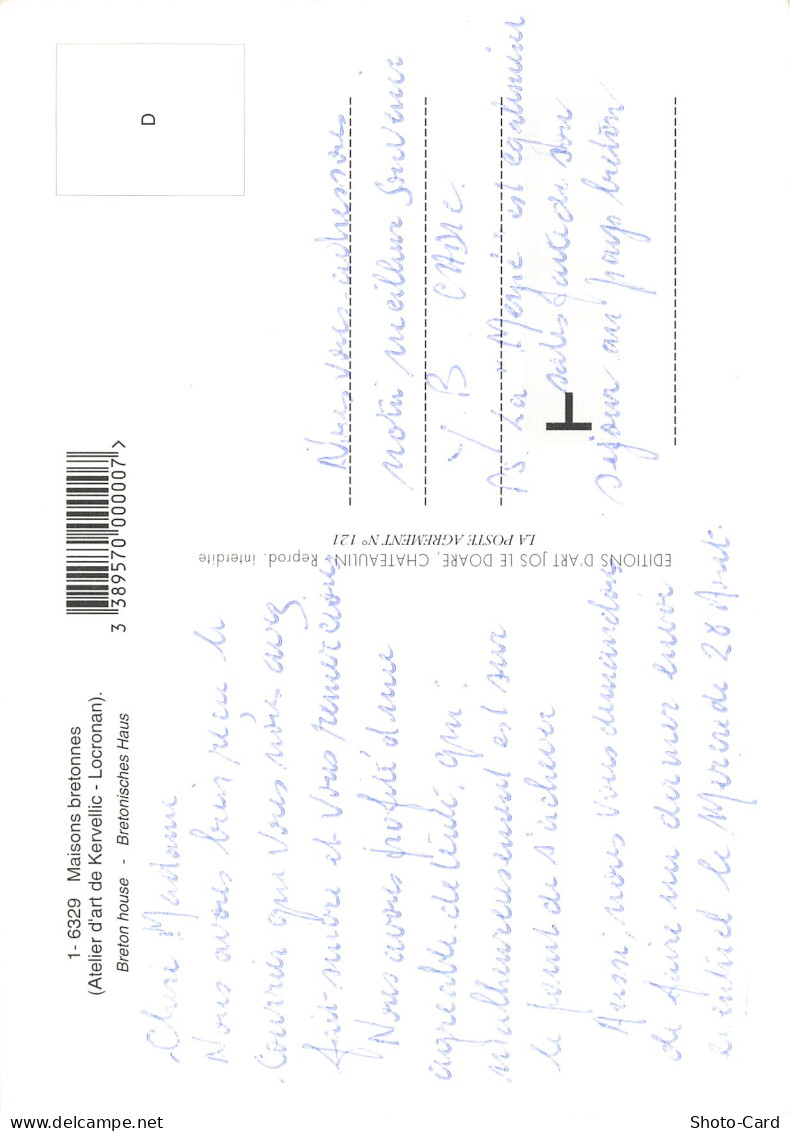 1- 6329 Maisons bretonnes
(Atelier d'art de Kervellic - Locronan).
Breton house - Bretonisches Haus
3 389570 000007 >
D
Chère Madame
Nous avons bien reçu le
Courrier que vous nous avez
fait suivre et vous remercions
Nous avons profité d'une
agréable détente, qui
malheureusement est sur
le point de s'achever
Aussi, nous vous demandons
de faire un dernier envoi
éventuel le Mercredi 28 Août.
EDITIONS D'ART JOS LE DOARE, CHATEAULIN - Reprod. interdite
LA POSTE AGREMENT N° 121
Nous vous adressons
notre meilleur souvenir
Y B
PS/ La "Mémé" est également
satisfaite de son
séjour au pays breton
T
Shoto-Card